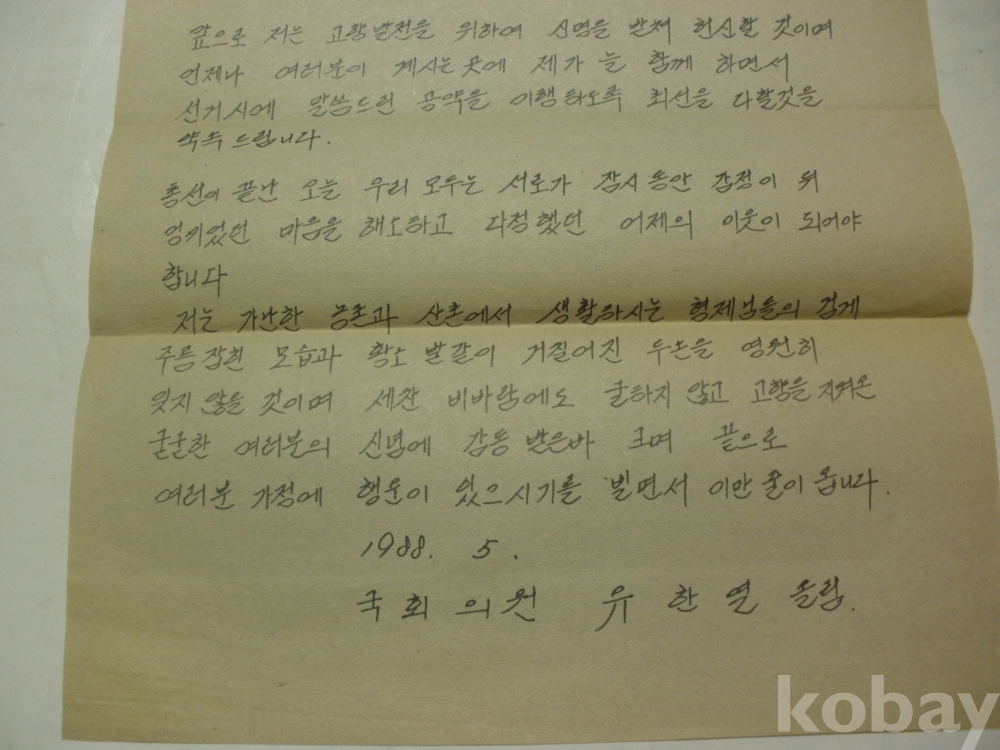 앞으로 저는 고향발전을 위하여 신명을 받쳐 헌신할 것이며
언제나 여러분이 계시는 곳에 제가 늘 함께 하면서
선거시에 말씀드린 공약을 이행하도록 최선을 다할것을
약속 드립니다.
총선이 끝난 오늘 우리 모두는 서로가 잠시 동안 감정이 뒤
엉키었던 마음을 해소하고 다정했던 어제의 이웃이 되어야
합니다
저는 가난한 농촌과 산촌에서 생활하시는 형제님들의 검게
주름잡힌 모습과 황소 발같이 거칠어진 두손을 영원히
잊지 않을 것이며 세찬 비바람에도 굴하지 않고 고향을 지켜온
굳굳한 여러분의 신념에 감동 받은바 크며 끝으로
여러분 가정에 행운이 있으시기를 빌면서 이만 줄이 옵니다.
1988. 5.
국회의원 유한열 올림.
kobay